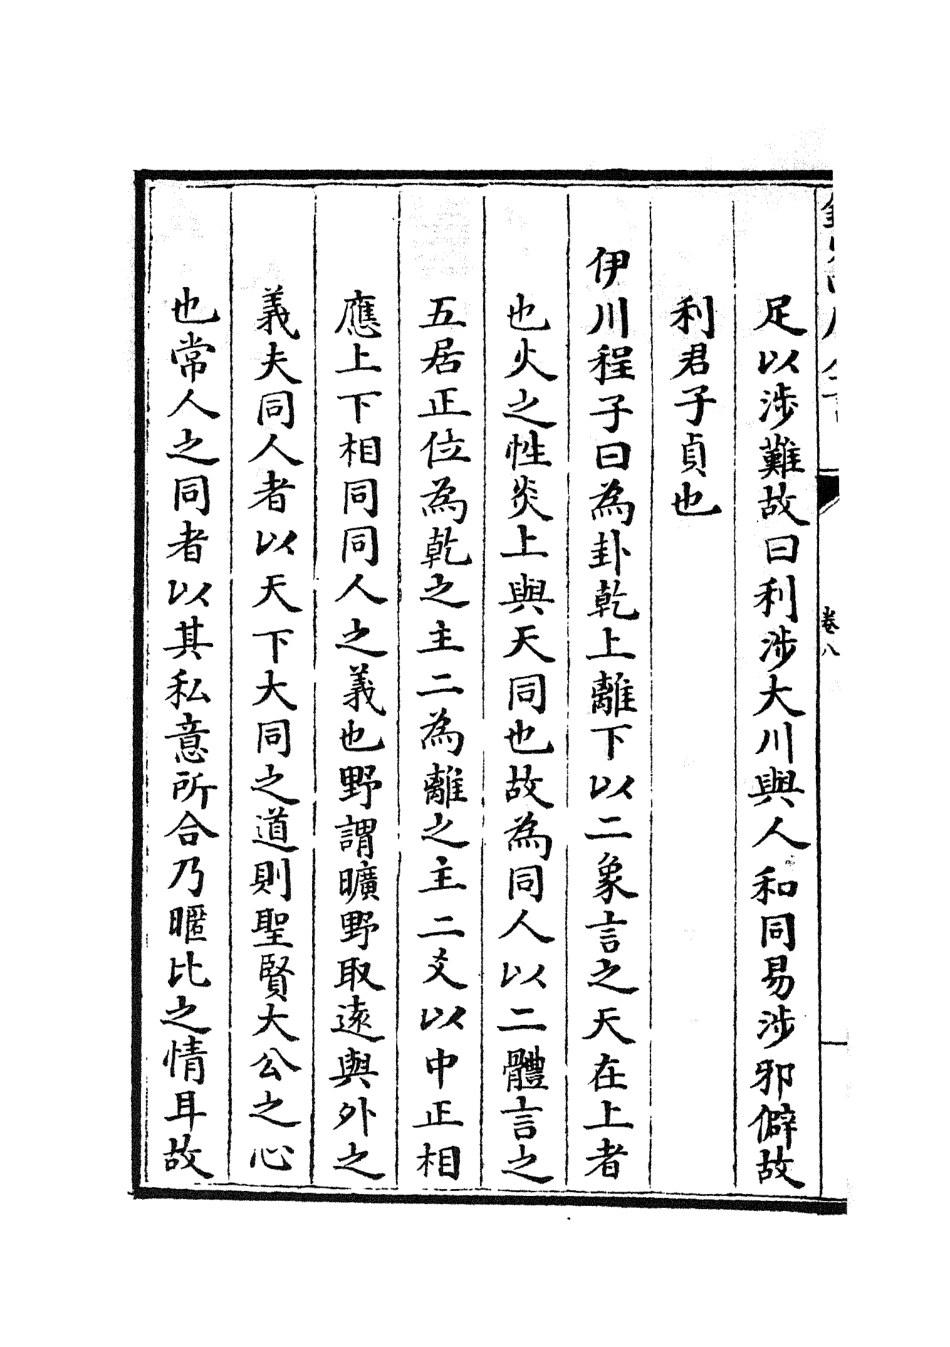 足以涉難故曰利涉大川與人和同易涉邪僻故
利君子貞也
伊川程子曰為卦乾上離下以二象言之天在上者
也火之性炎上與天同也故為同人以二體言之
五居正位為乾之主二為離之主二爻以中正相
應上下相同同人之義也野謂曠野取逺與外之
義夫同人者以天下大同之道則聖賢大公之心
也常人之同者以其私意所合乃暱比之情耳故
卷八